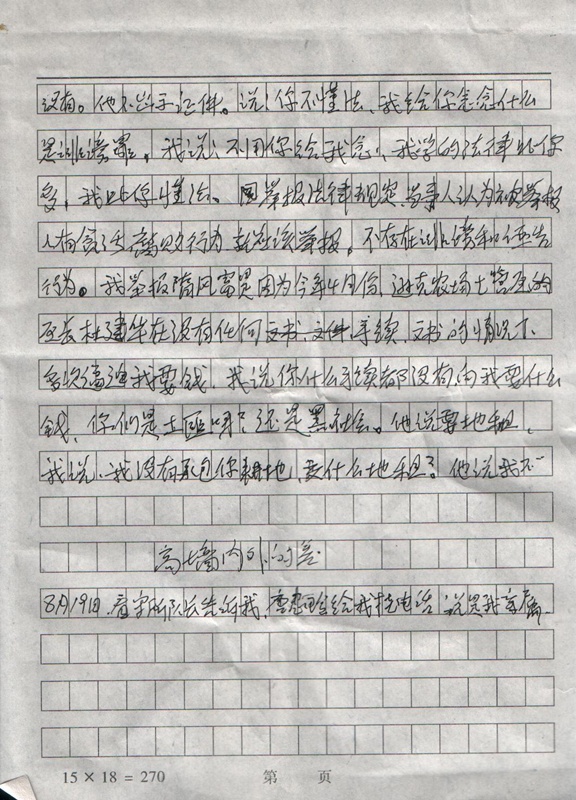 没有。他不出示证件。说:你不懂法、我给你念念什么
是诽谤罪。我说:不用你给我念、我学的法律比你
多,我比你懂法。国举报法律规定,当事人认为被举报
人有贪污腐败行为就应该举报。不存在诽谤和诬告
行为。我举报隋凤富是因为今年4月份,逊克农场七管区的
区长杜建华在没有任何文书、文件、手续、文书的情况下
多次逼迫我要钱。我说你什么手续都没有,向我要什么
钱,你们是土匪吗?还是黑社会。他说要地租,
我说、我没有承包你耕地,要什么地租?他说我不
高墙内外的
8月19日,看守所队长告诉我,给我打电话 说是我亲属
15 × 18 = 270 第 页